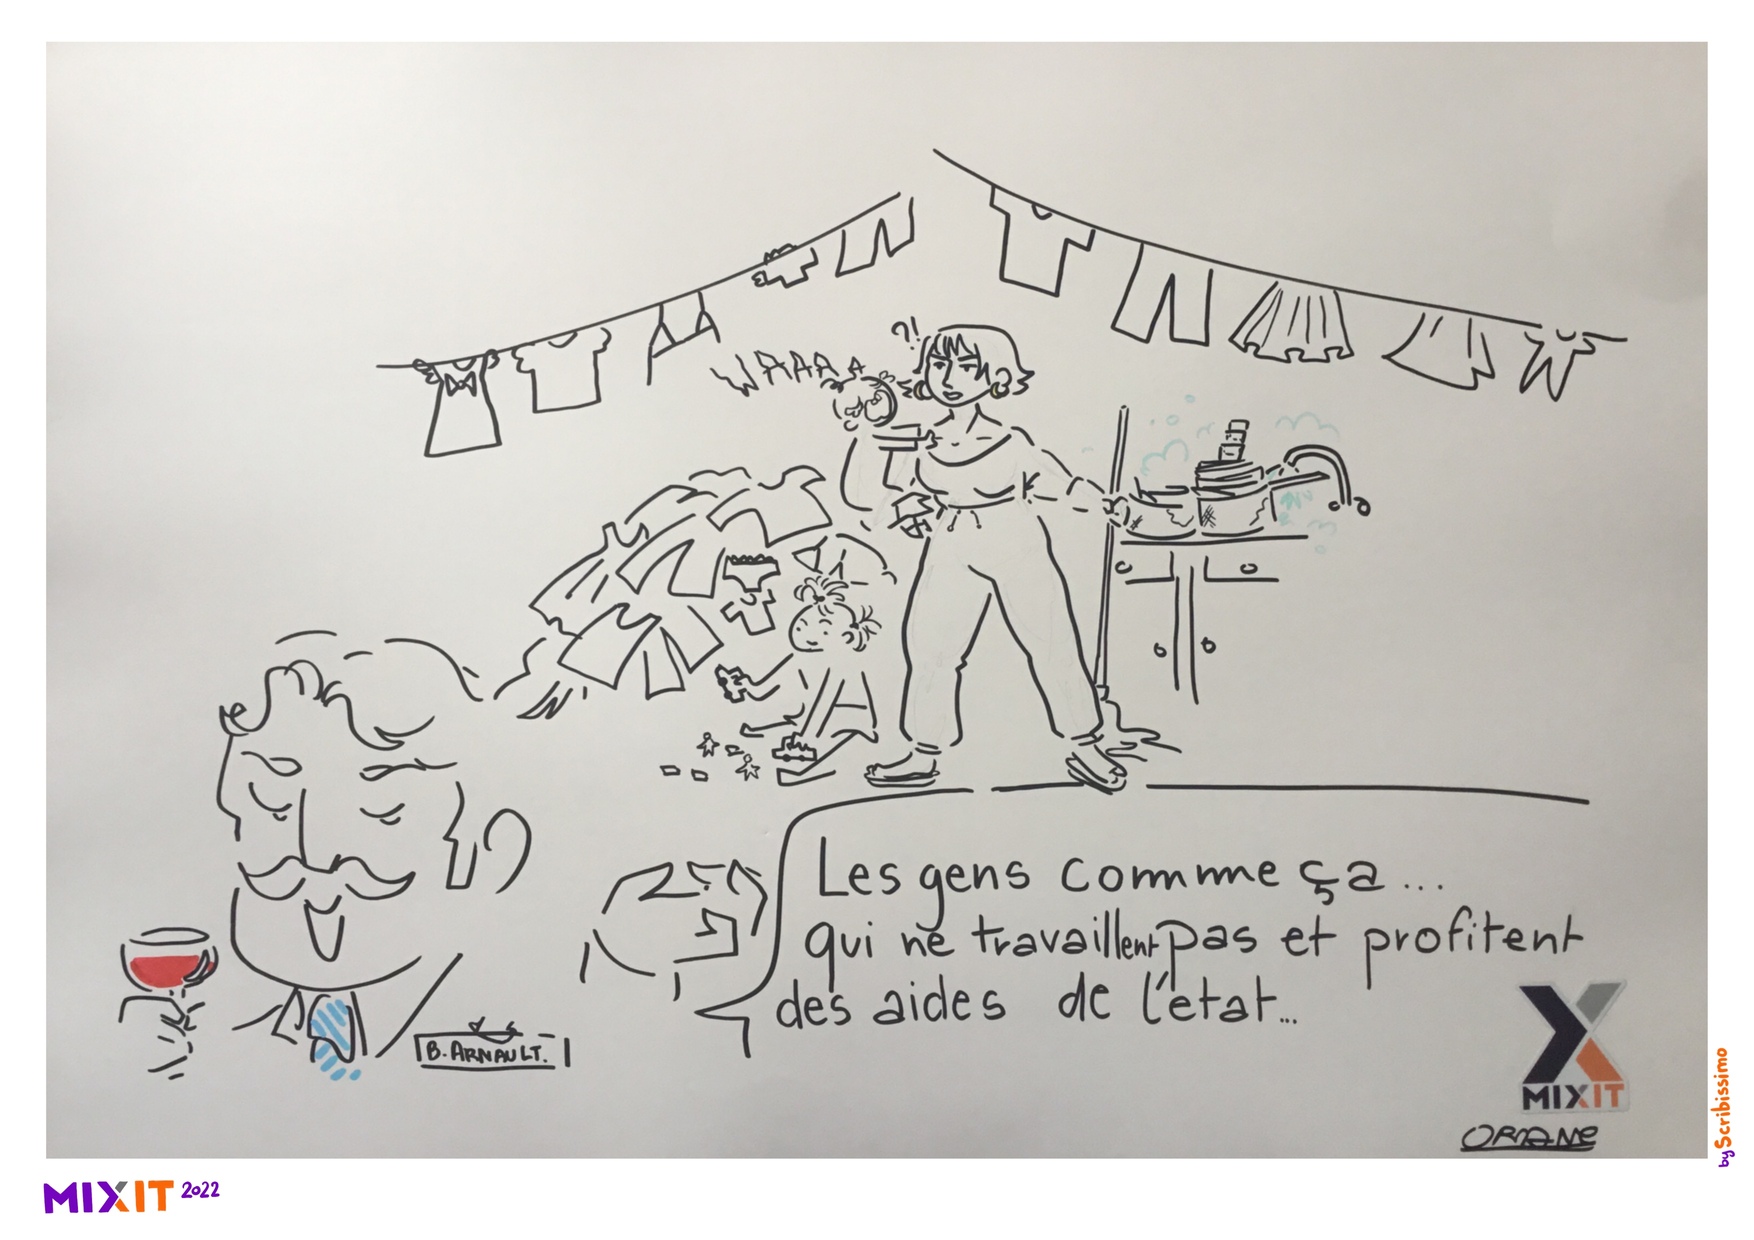 ?!
WAAAA
Les gens comme ça...
qui ne travaillent pas et profitent
des aides de l'état...
B. ARNAULT.
MIXIT
ORIANE
by Scribissimo
MIXIT 2022